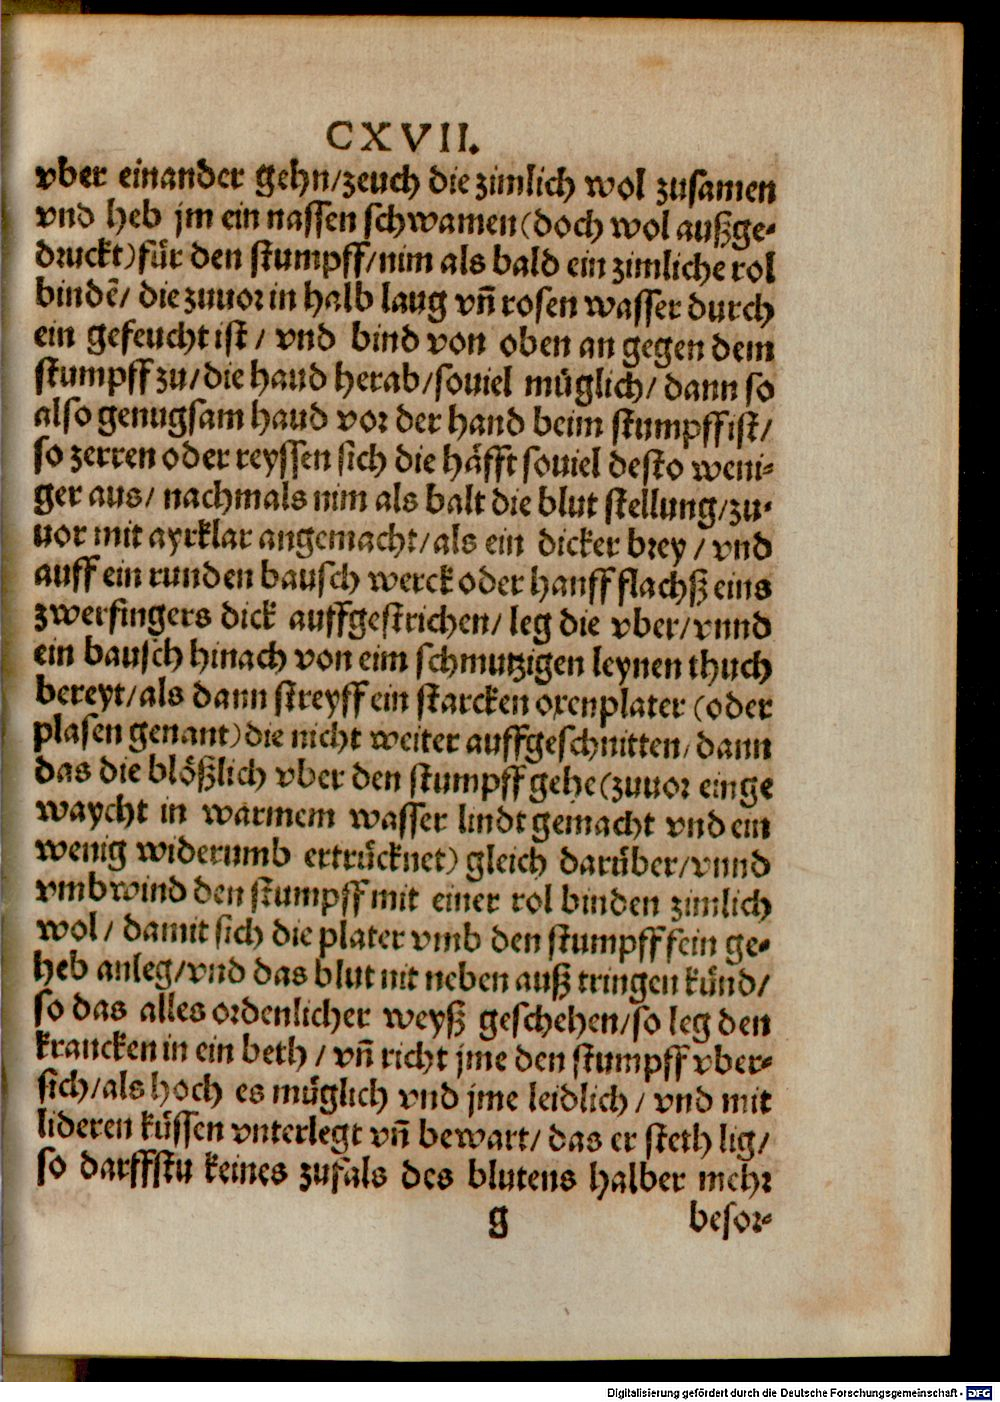 CXVII.
vber einander gehn/zeuch die zimlich wol zusamen
vnd heb jm ein nassen schwamen (doch wol außge-
druckt) für den stumpff/nim als bald ein zimliche rol
bindẽ/ die zuuor in halb laug vñ rosen wasser durch
ein gefeucht ist / vnd bind von oben an gegen dem
stumpff zu/die haud herab/souiel müglich/ dann so
also genugsam haud vor der hand beim stumpff ist/
so zerren oder reyssen sich die häfft souiel desto weni-
ger aus/ nachmals nim als balt die blut stellung/zu-
uor mit ayrklar angemacht/als ein dicker brey / vnd
auff ein runden bausch werck oder hanff flachß eins
zwerfingers dick auffgestrichen/ leg die vber/vnnd
ein bausch hinach von eim schmutzigen leynen thuch
bereyt/als dann streyff ein starcken oxenplater (oder
plasen genant) die nicht weiter auffgeschnitten/dann
das die blößlich vber den stumpff gehe (zuuor einge
waycht in warmem wasser lindt gemacht vnd ein
wenig widerumb ertrücknet) gleich darüber/vnnd
vmbwind den stumpff mit einer rol binden zimlich
wol/ damit sich die plater vmb den stumpff fein ge-
heb anleg/vnd das blut nit neben auß tringen künd/
so das alles ordenlicher weyß geschehen/so leg den
krancken in ein beth / vñ richt jme den stumpff vber-
sich/als hoch es müglich vnd jme leidlich / vnd mit
lideren küssen vnterlegt vñ bewart/ das er steth lig/
so darffstu keines zufals des blutens halber mehr
g besor-
Digitalisierung gefördert durch die Deutsche Forschungsgemeinschaft - DFG